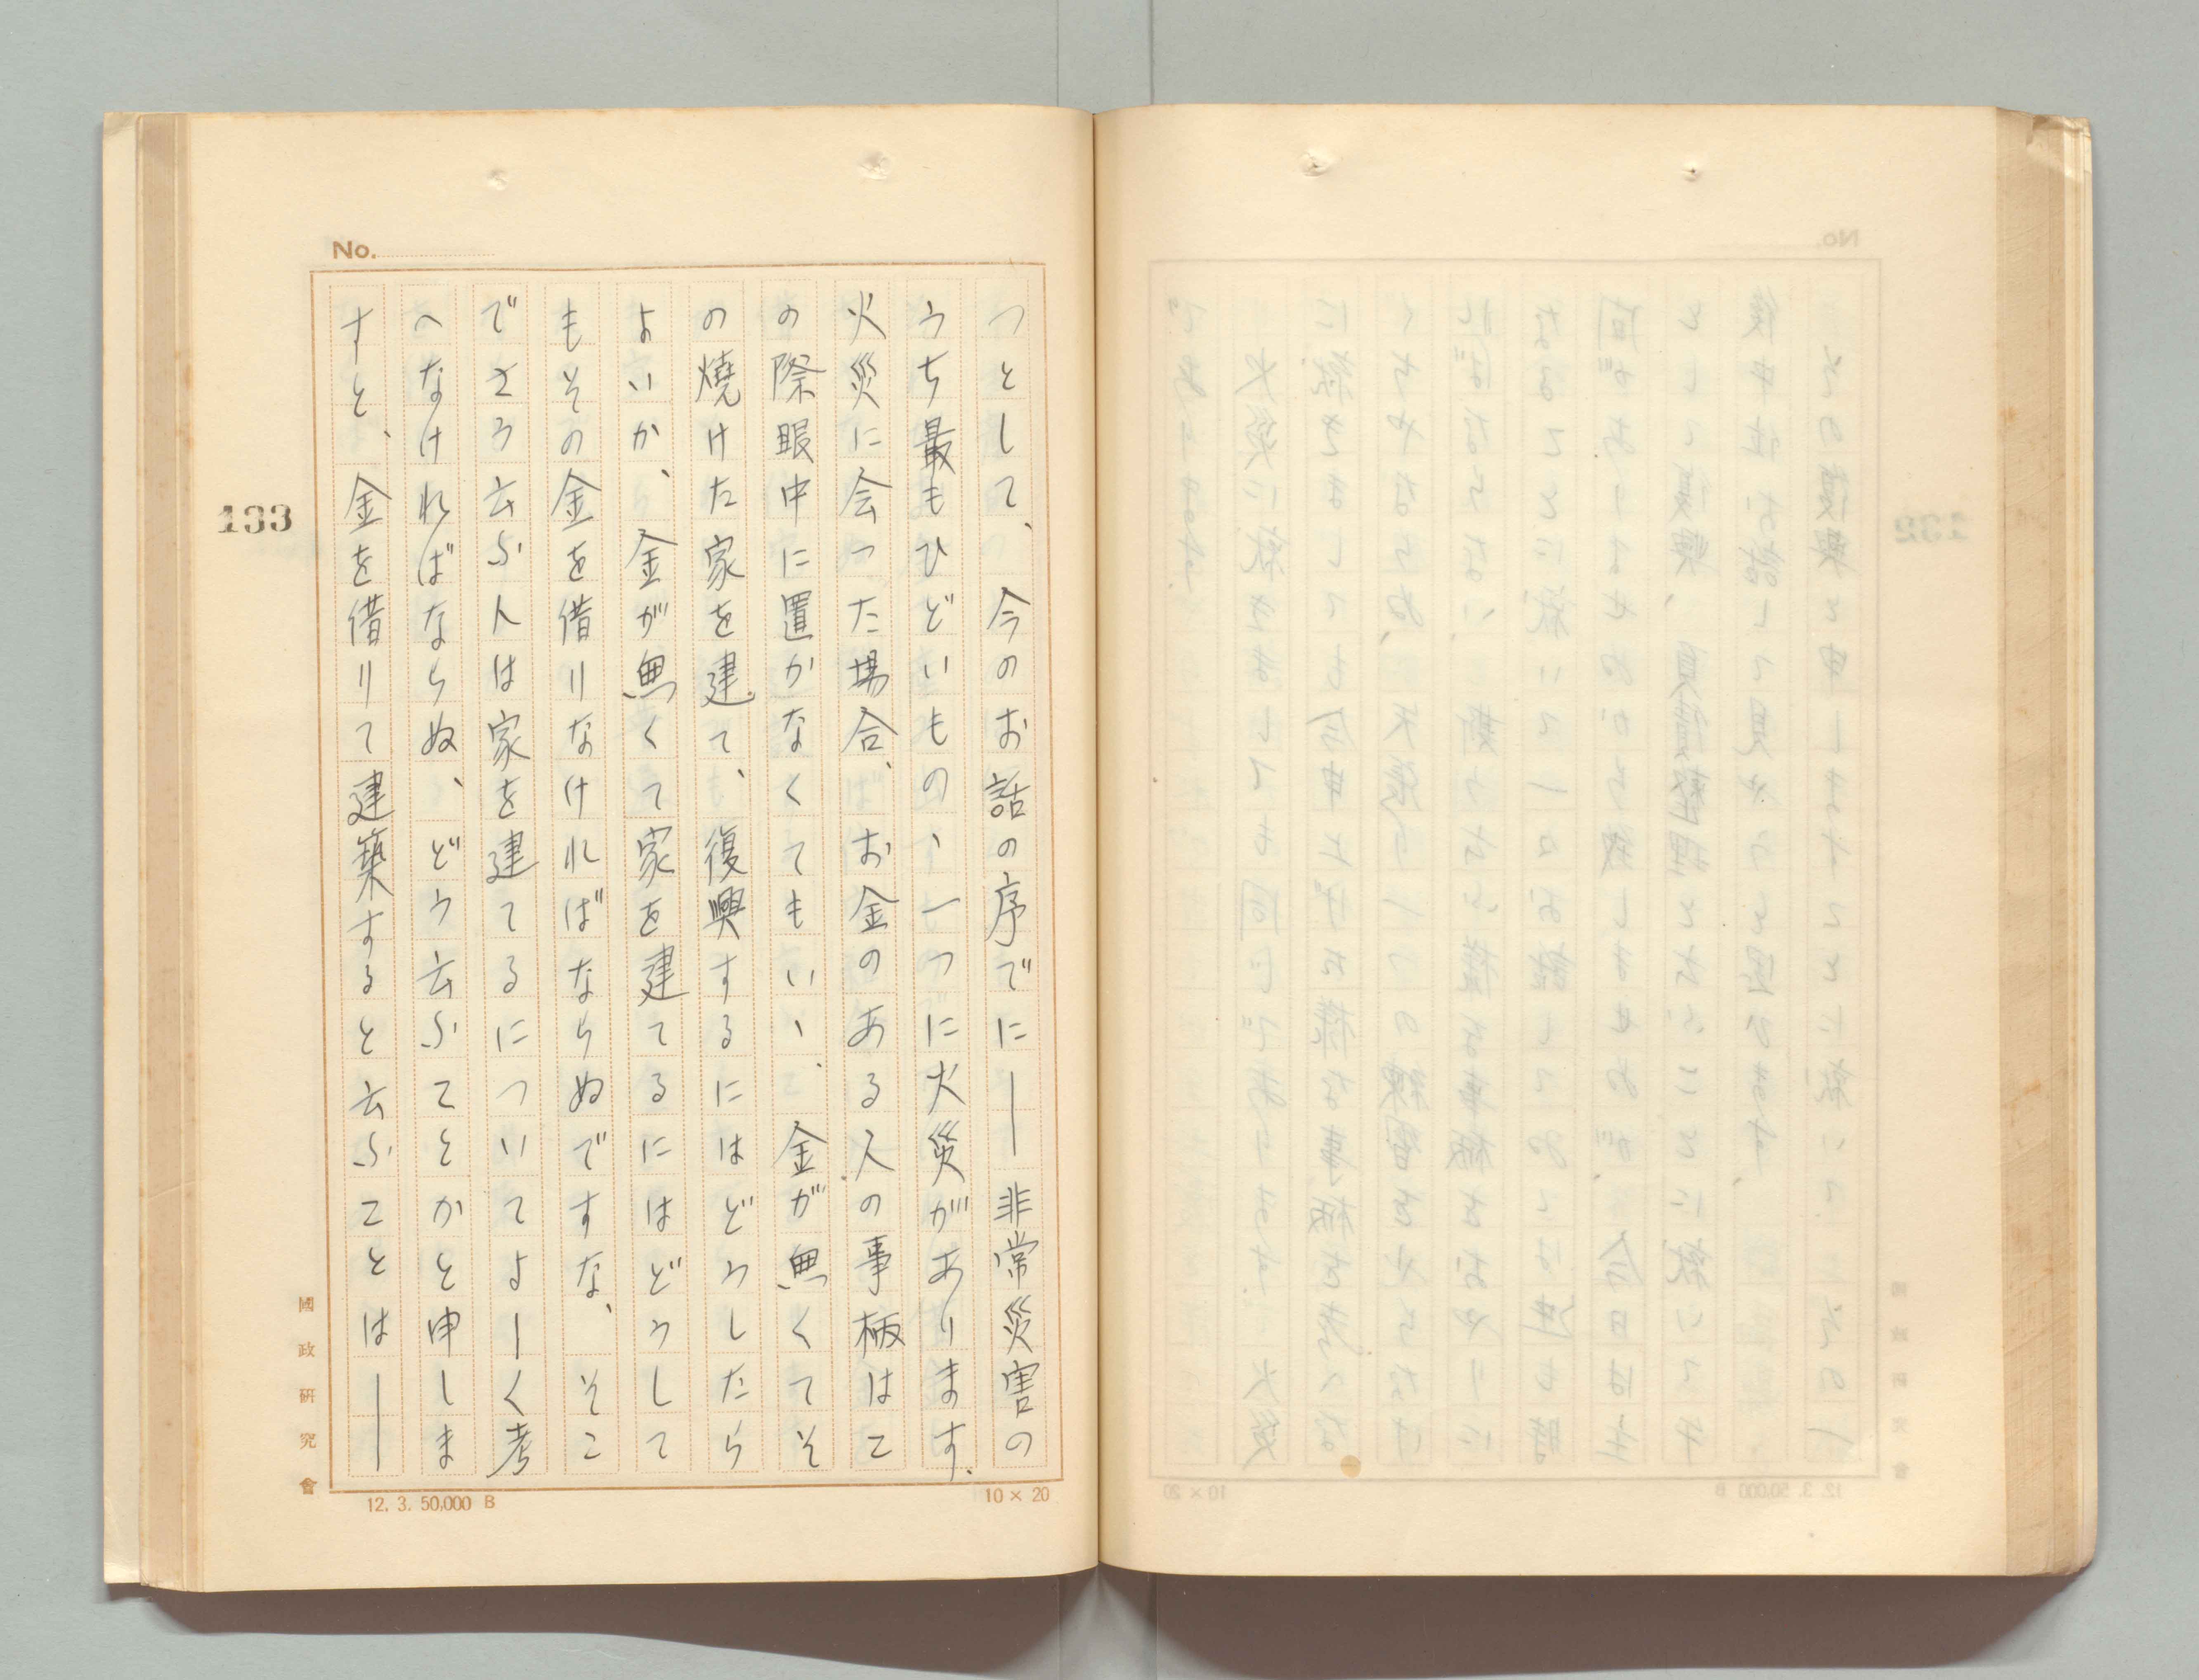 No.
つとして、今のお話の序でに――非常災害の
うち最もひどいもの、一つに火災があります。
火災に会つた場合、お金のある人の事柄はこ
の際眼中に置かなくてもいゝ、金が無くてそ
の焼けた家を建て、復興するにはどうしたら
よいか、金が無くて家を建てるにはどうして
もその金を借りなければならぬですな、そこ
でさう云ふ人は家を建てるについてよーく考
へなければならぬ、どう云ふことかと申しま
すと、金を借りて建築すると云ふことは――
133
國政研究會
12. 3. 50,000 B
10×20